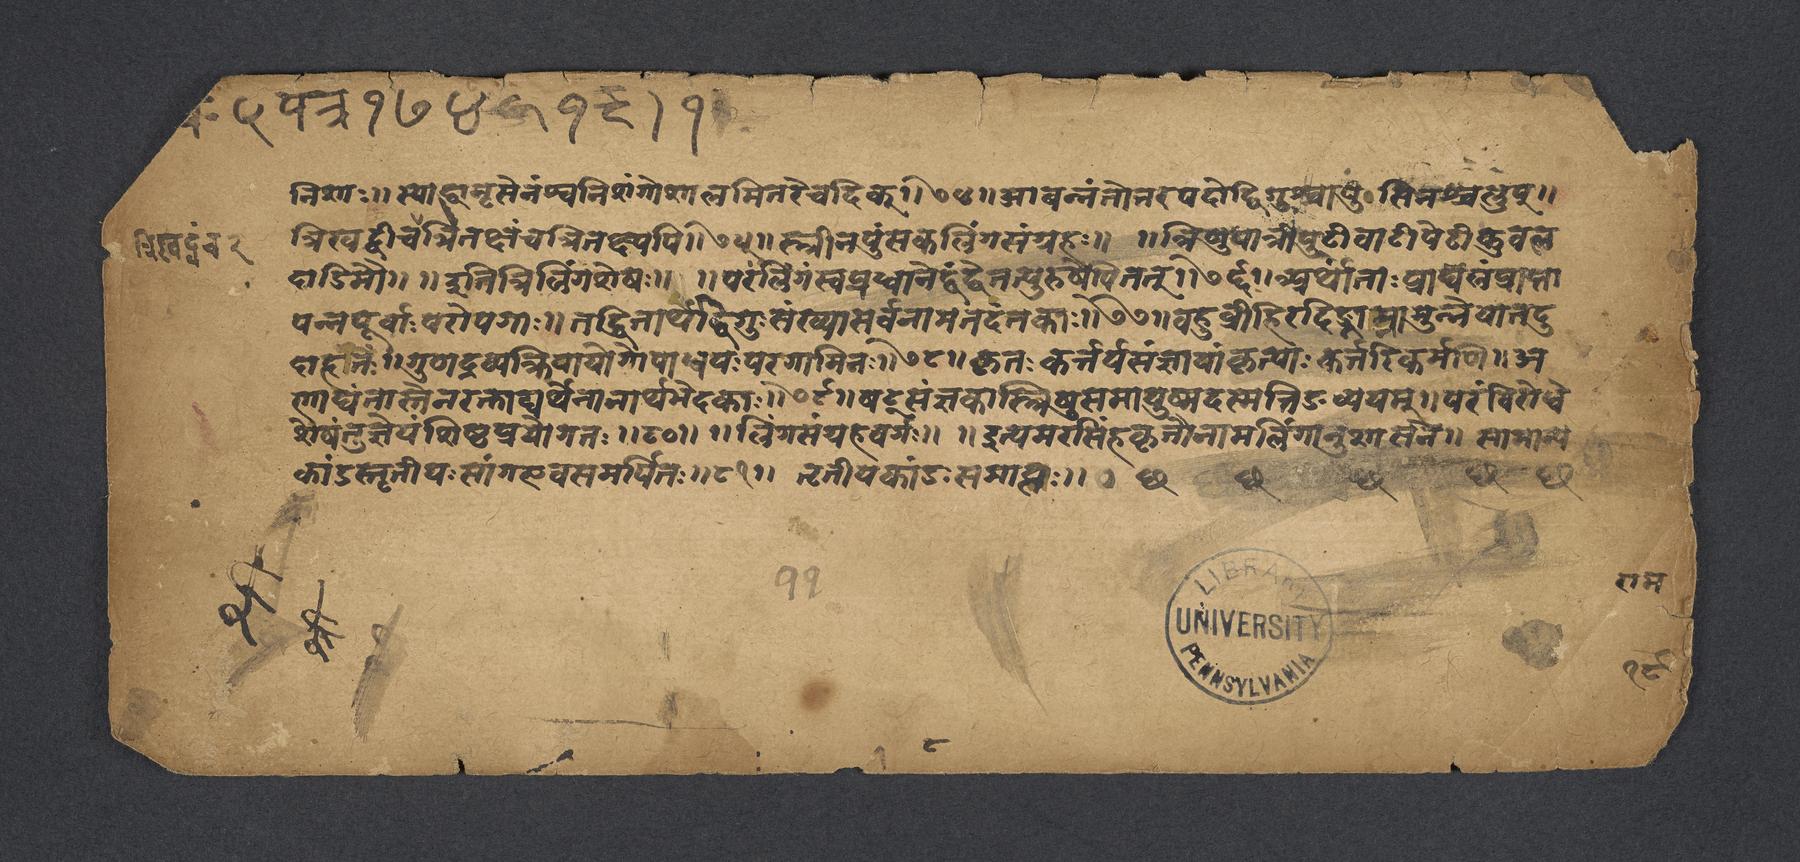 ५ पत्र १७
निशः ॥ स्याद्वा नृसेनं श्वनिशं गोशालमितरे च दिक् ॥ ७४ ॥ आबन्नंतोत्तरपदो द्विगुश्चापुंसि नश्च लुप् ॥
त्रिखट्वी च त्रितक्षं च त्रितक्ष्यपि ॥ ७५ ॥ स्त्रीनपुंसकलिंगसंग्रहः ॥ ॥ त्रिषु पात्री पुटी वाटी पेटी कुवल
दाडिमौ ॥ ॥ इति त्रिलिंगशेषः ॥ ॥ परं लिंगं स्वप्रधाने द्वंद्वे तत्पुरुषेपि तत् ॥ ७६ ॥ अर्थांताः प्राद्यलंप्राप्ता
पन्नपूर्वाः परोपगाः ॥ तद्धितार्थो द्विगुः संख्यासर्वनामतदंतकाः ॥ ७७ ॥ बहुव्रीहिरदिङ्नाम्नामुन्नेयं तदु
दाहृतं ॥ गुणद्रव्यक्रियायोगोपाधयः परगामिनः ॥ ७८ ॥ कृतः कर्तर्यसंज्ञायां कृत्याः कर्तरि कर्मणि ॥ अ
णाद्यंतास्तेन रक्ताद्यर्थे नानार्थभेदकाः ॥ ७९ ॥ षट्संज्ञकास्त्रिषु समा युष्मदस्मत्तिङव्ययम् ॥ परं विरोधे
शेषं तु ज्ञेयं शिष्टप्रयोगतः ॥ ८० ॥ ॥ लिंगसंग्रहवर्गः ॥ ॥ इत्यमरसिंहकृतौ नामलिंगानुशासने ॥ सामान्य
कांडस्तृतीयः सांग एव समर्थितः ॥ ८१ ॥ तृतीयकांडः समाप्तः ॥ छ छ छ छ छ
श्री
श्री
११
LIBRARY
UNIVERSITY
PENNSYLVANIA
राम
१९